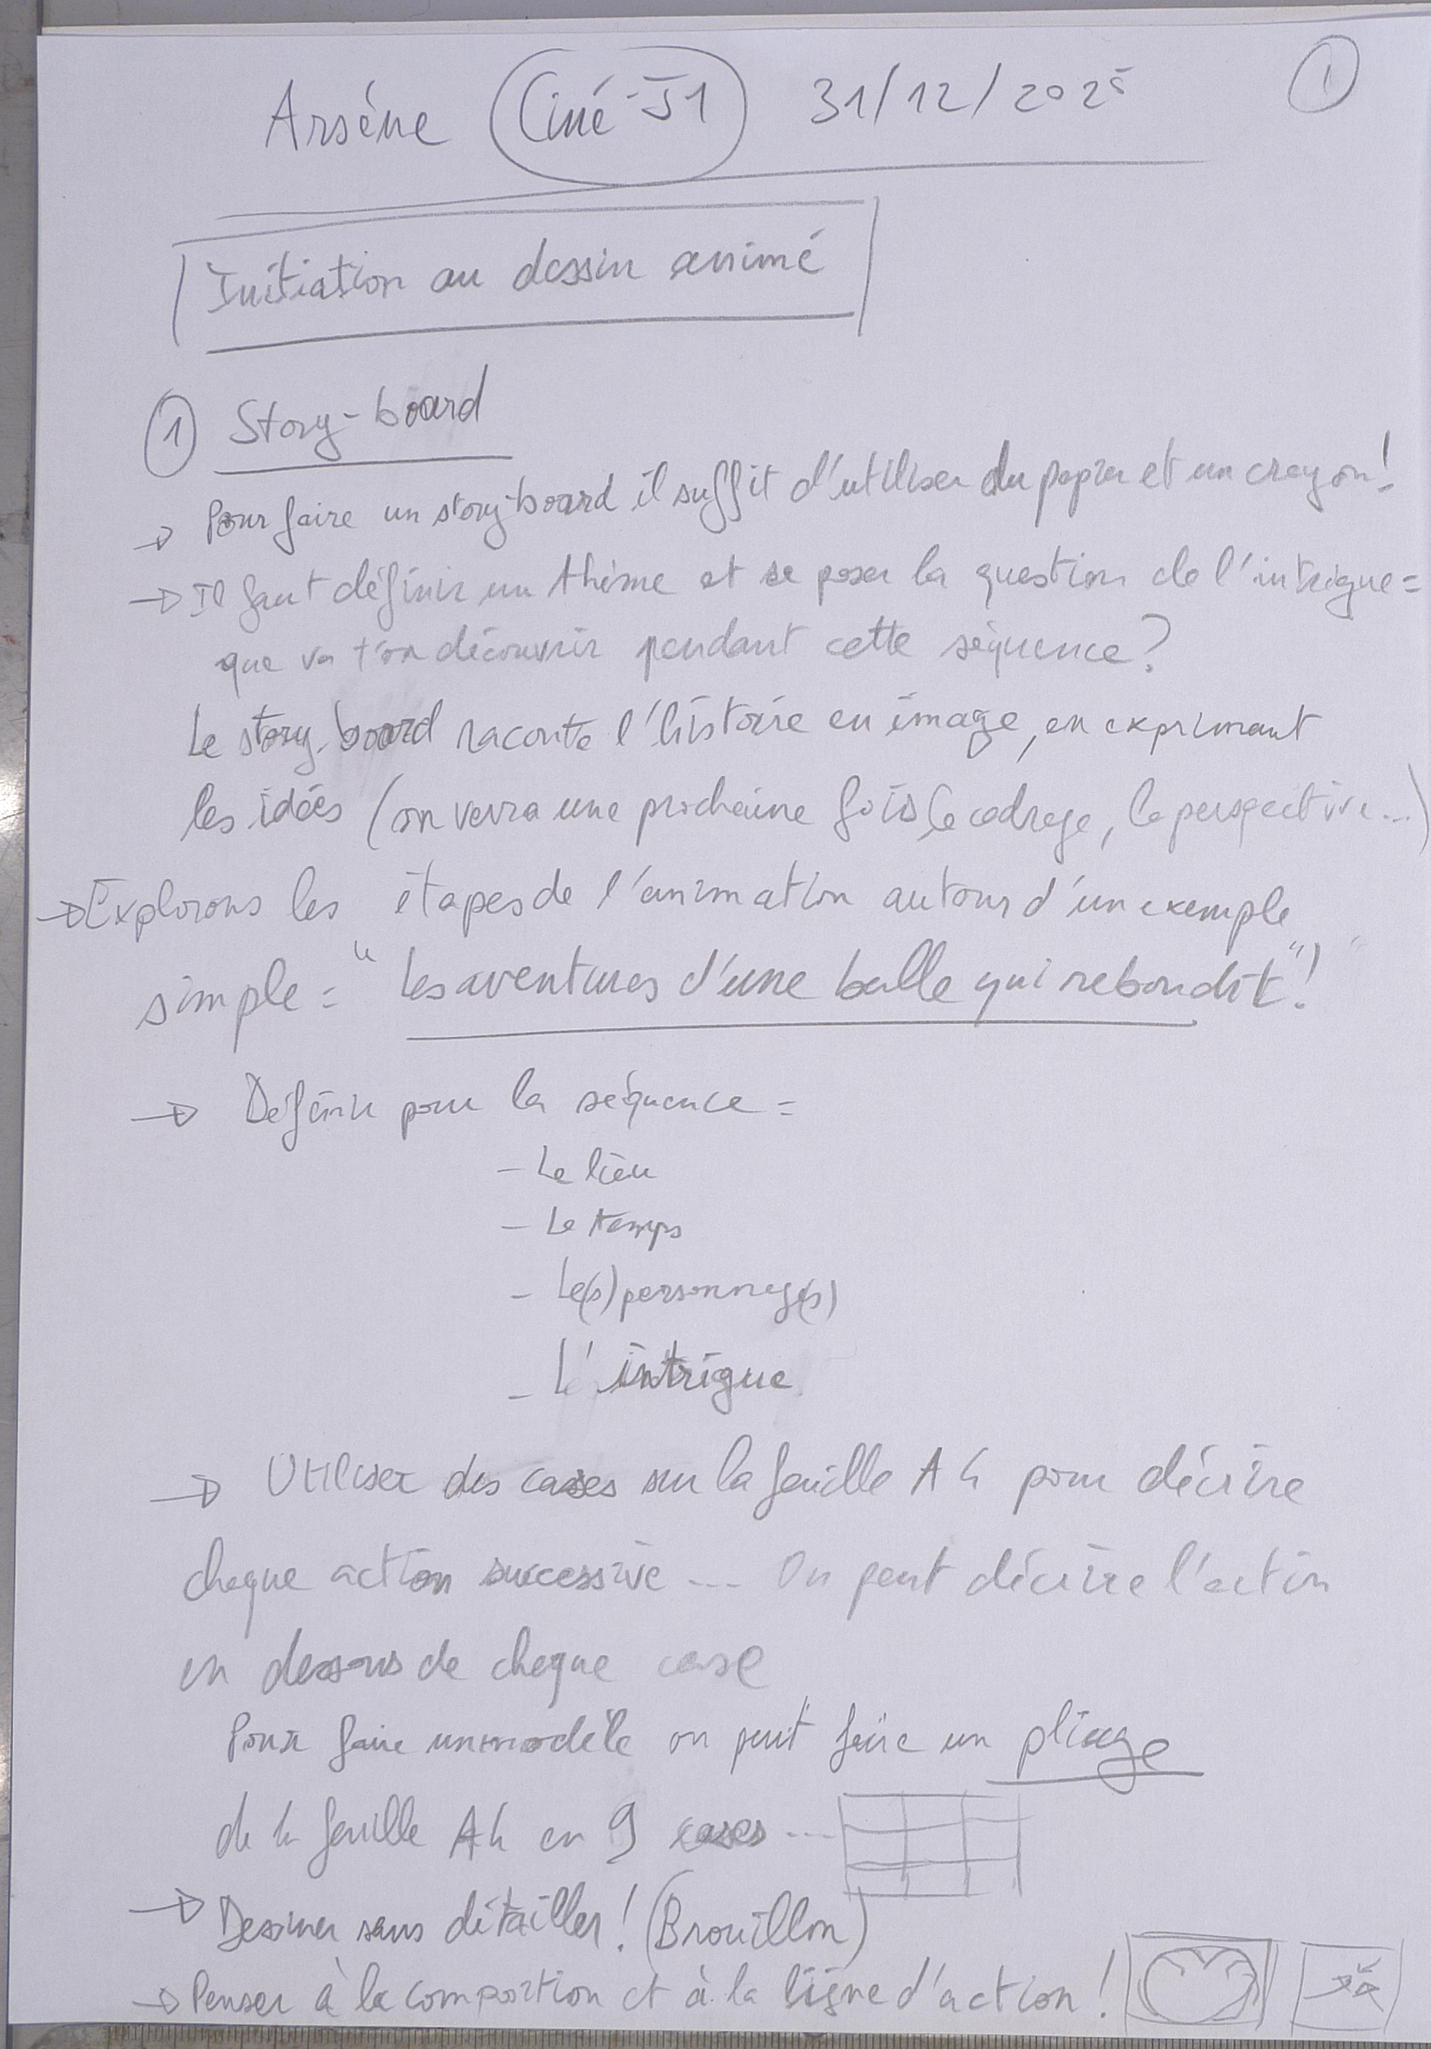 Arsène Ciné-J1 31/12/2025 1
Initiation au dessin animé
1 Story-board
→ Pour faire un story-board il suffit d'utiliser du papier et un crayon!
→ Il faut définir un thème et se poser la question de l'intrigue =
que va t'on découvrir pendant cette séquence?
Le story-board raconte l'histoire en image, en exprimant
les idées (on verra une prochaine fois le cadrage, la perspective...)
→ Explorons les étapes de l'animation autour d'un exemple
simple = "les aventures d'une balle qui rebondit"!
→ Définir pour la séquence =
- Le lieu
- Le temps
- Le(s) personnage(s)
- L'intrigue
→ Utiliser des cases sur la feuille A4 pour décrire
chaque action successive ... On peut décrire l'action
en dessous de chaque case
Pour faire un modèle on peut faire un pliage
de la feuille A4 en 9 cases ...
→ Dessiner sans détailler! (Brouillon)
→ Penser à la composition et à la ligne d'action!